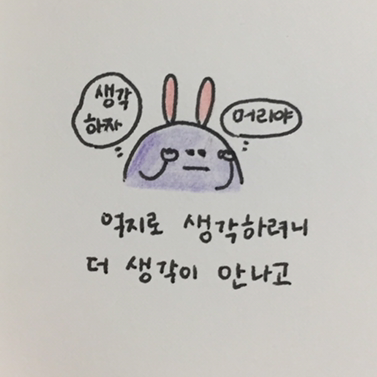 생각
하자
머리야
억지로 생각하려니
더 생각이 안나고